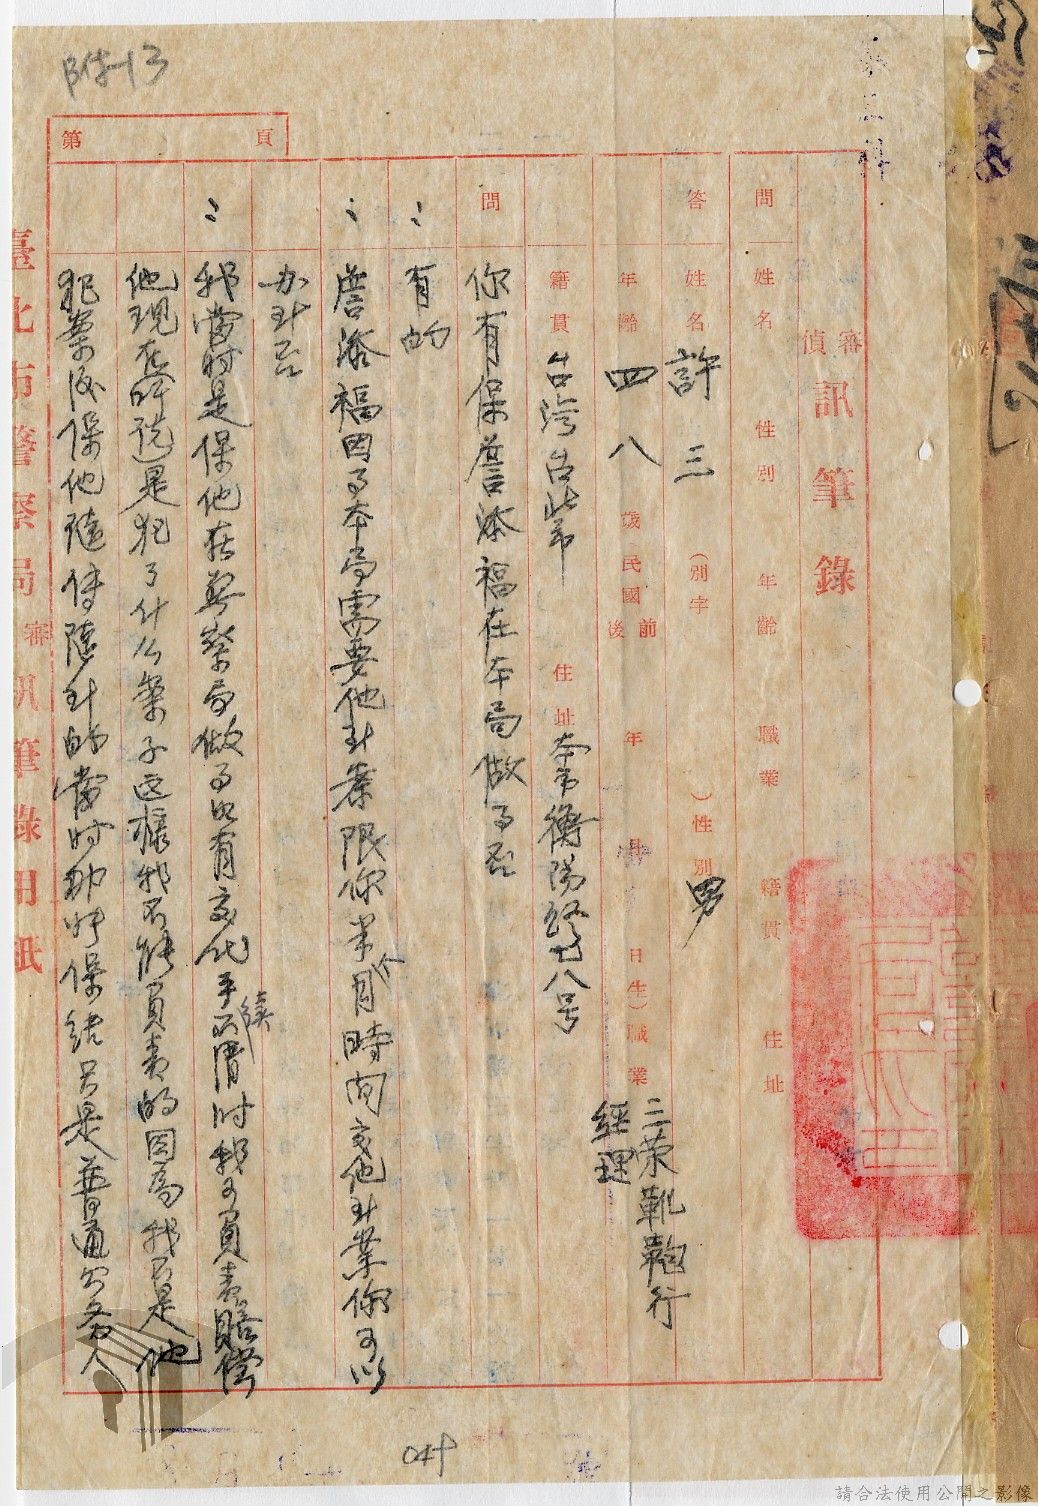 附13
第　頁
第三科
偵審訊筆錄
問 姓名 性別 年齡 職業 籍貫 住址
答 姓名 許三 (別字　) 性別 男
年齡 四八 歲 民國前後 年 月 日生) 職業 三荣靴鞄行經理
籍貫 台湾台北市 住址 本市衡陽路七八号
問 你有保詹添福在本局做事否
〃 有的
〃 詹添福因事本局需要他到案限你半個月時间交他到案你可以
办到否
〃 我當时是保他在警察局做事如有交代手續不清时我可負責賠偿
他现在听说是犯了什么案子这樣我不能負責的因為我不是他
犯案後保他隨傳隨到的當时我保结只是普通公务人
臺北市警察局偵審訊筆錄用紙
請合法使用公開之影像